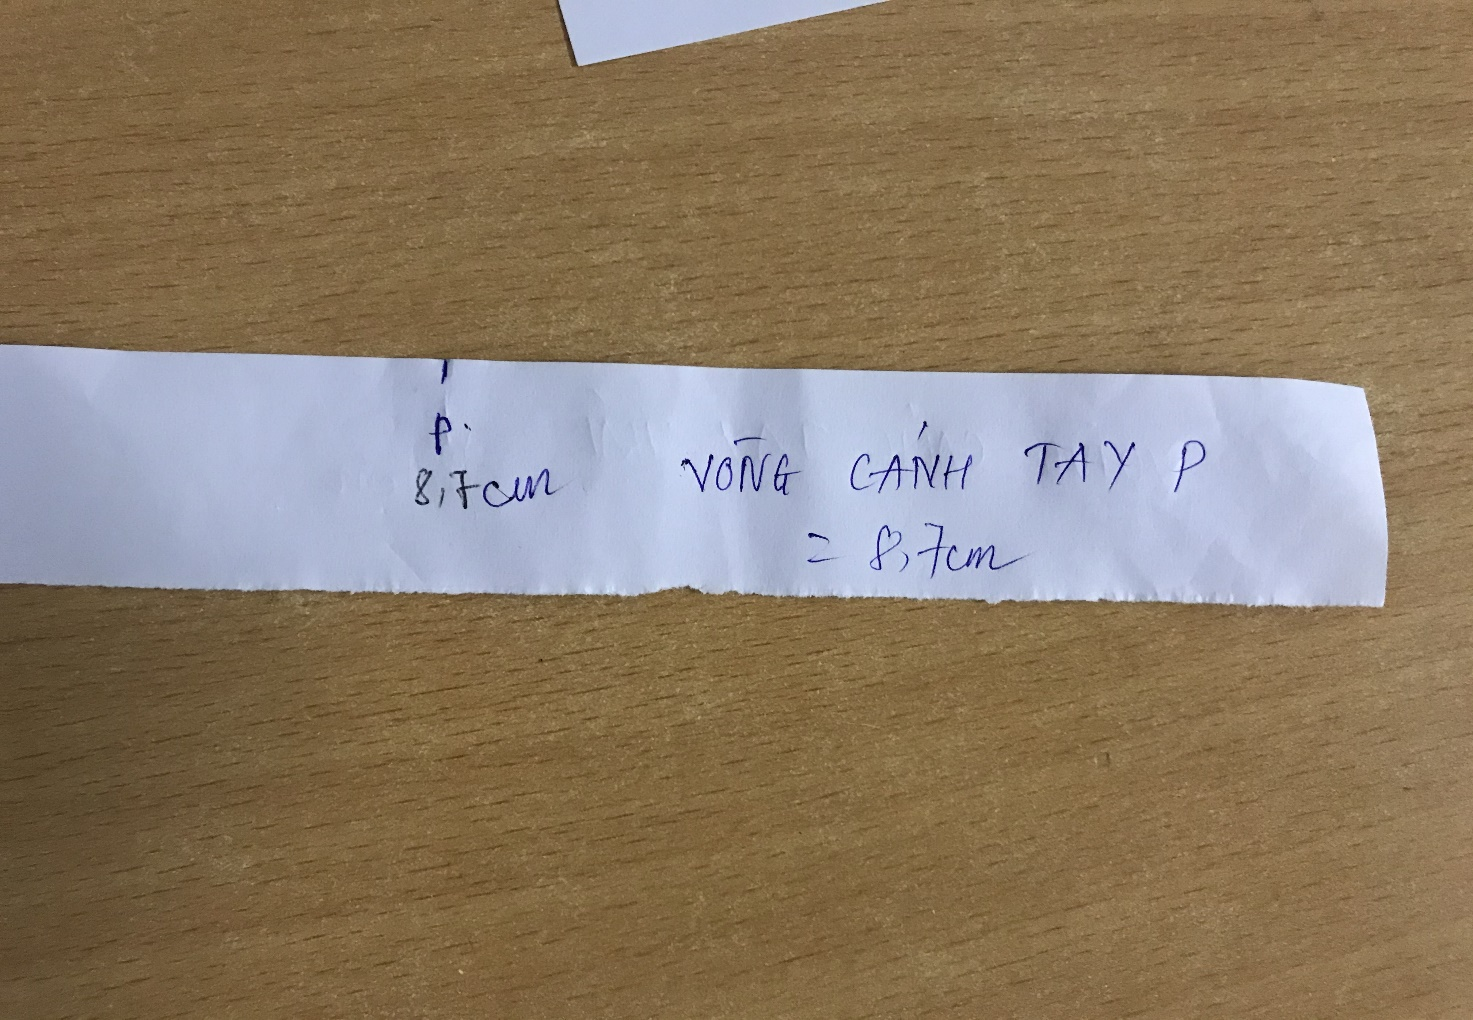 P.
8,7cm
VÒNG CÁNH TAY P
= 8,7cm